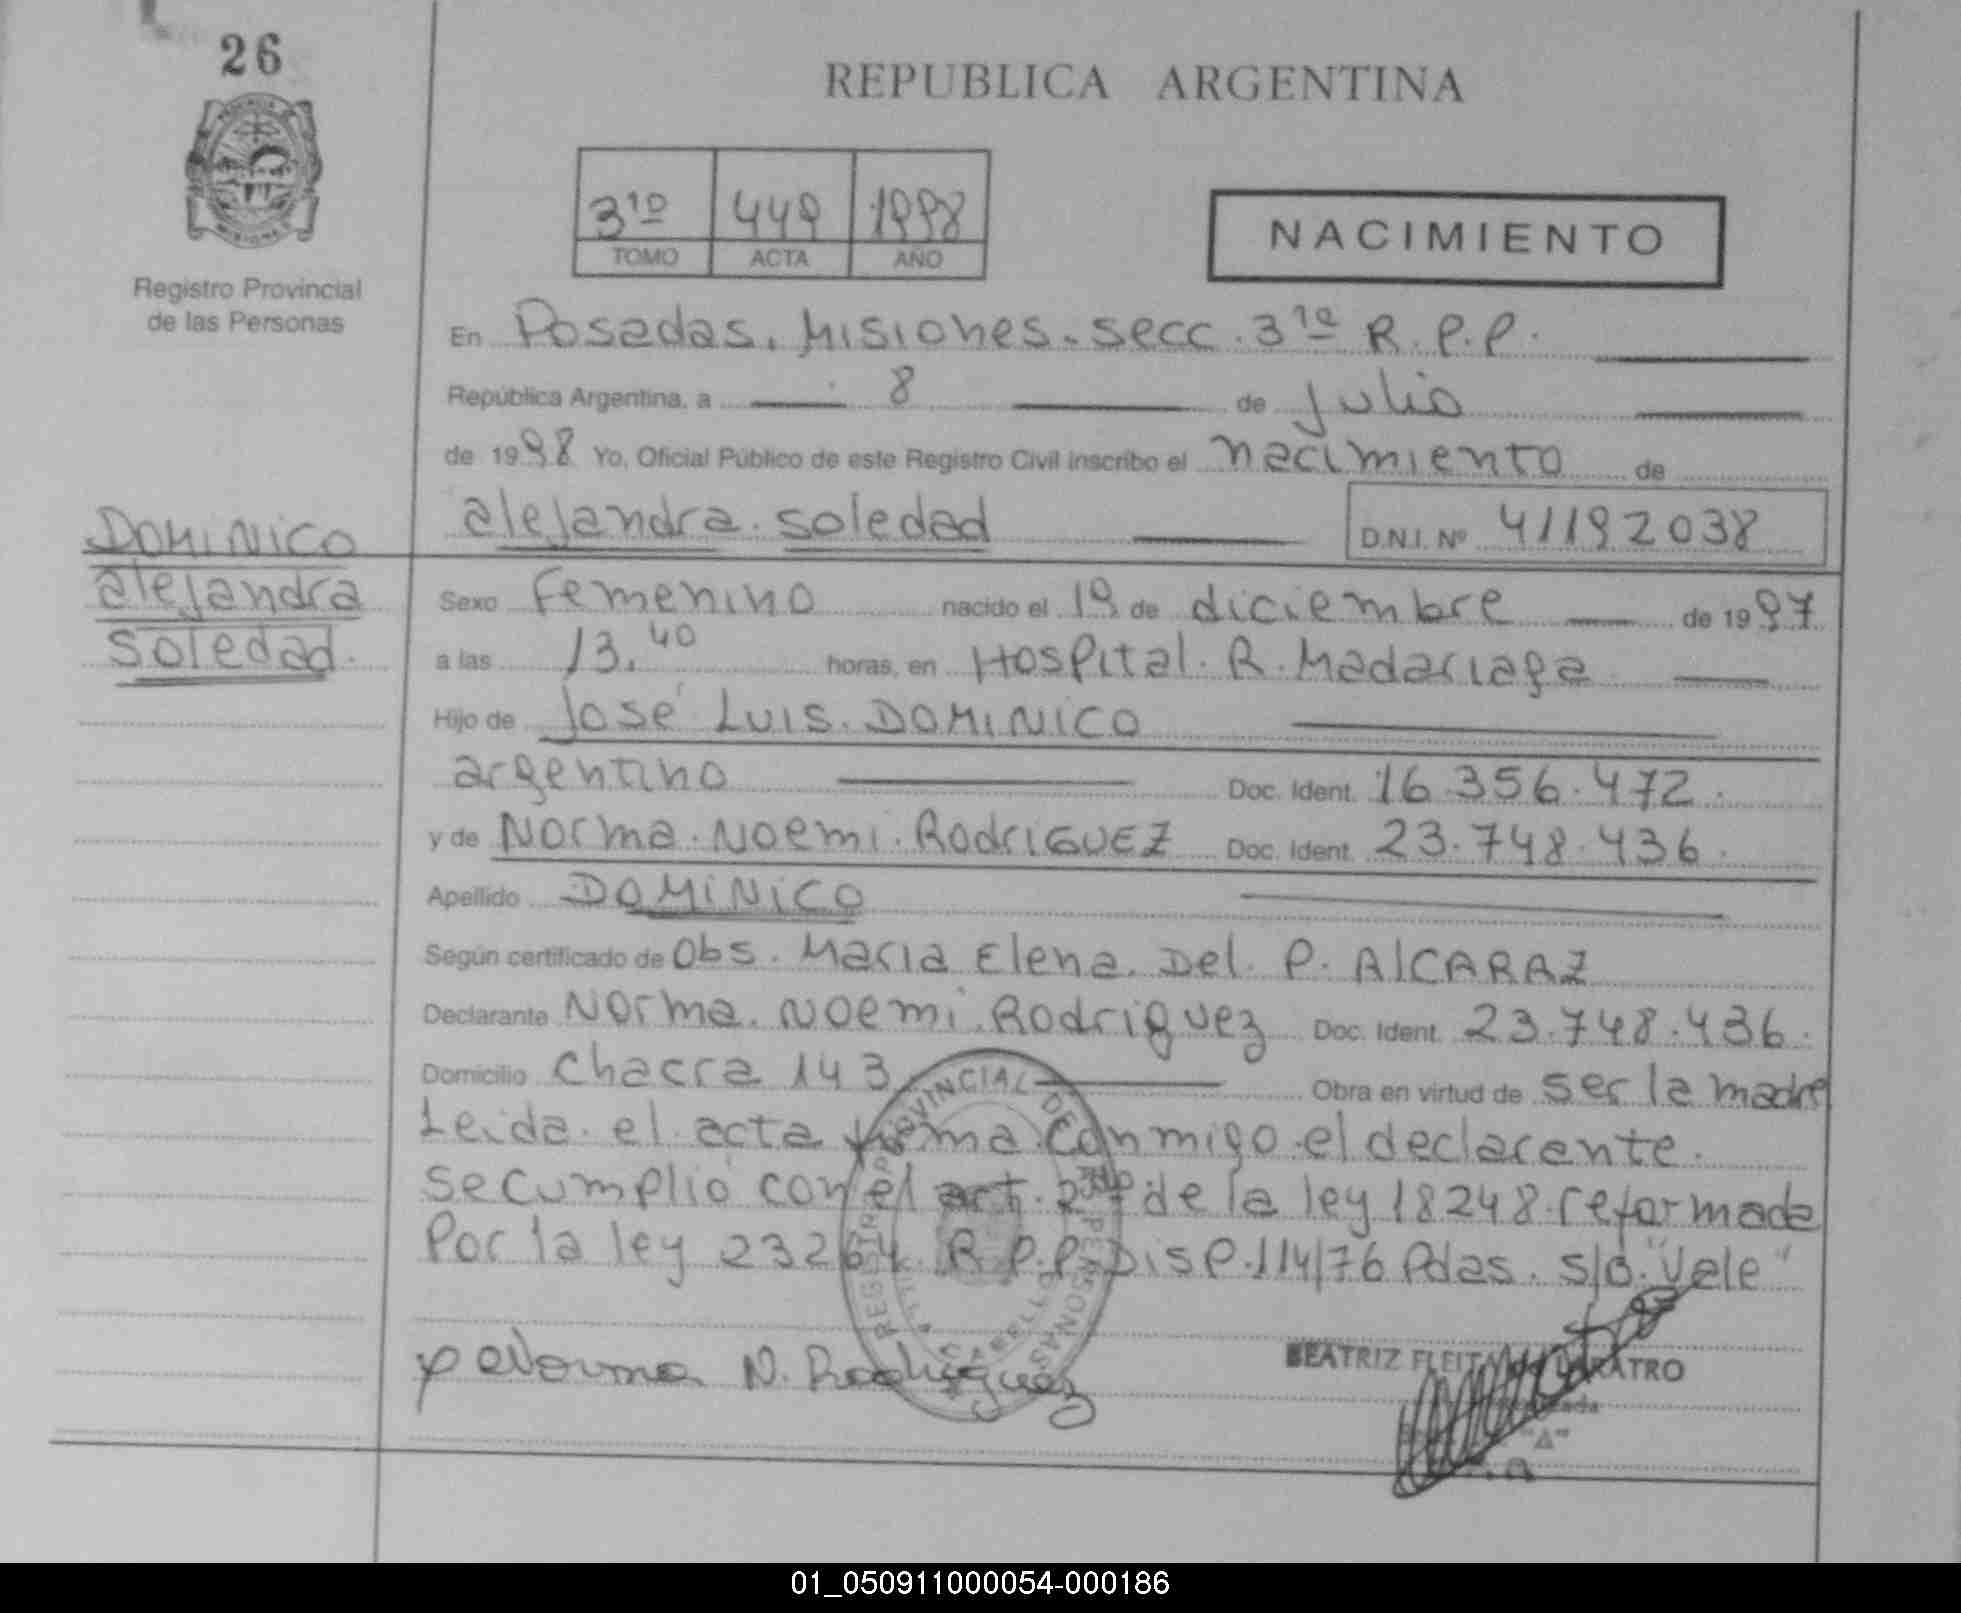 26
REPUBLICA ARGENTINA
3ro 449 1998
TOMO ACTA AÑO
NACIMIENTO
Registro Provincial
de las Personas
En Posadas. Misiones. secc. 3ra R.P.P.
República Argentina, a 8 de julio
de 1998 Yo, Oficial Público de este Registro Civil inscribo el nacimiento de
alejandra. soledad D.N.I. Nº 41192038
DOMINICO
alejandra
soledad.
Sexo Femenino nacido el 19 de diciembre de 1997
a las 13.40 horas, en Hospital. R. Madariaga
Hijo de José Luis. DOMINICO
argentino Doc. Ident. 16.356.472.
y de Norma. Noemi. RodriGUEZ Doc. Ident. 23.748.436.
Apellido DOMINICO
Según certificado de Obs. Maria Elena. Del. P. AlCARAZ
Declarante Norma. Noemi. Rodriguez Doc. Ident. 23.748.436.
Domicilio Chacra 143 Obra en virtud de ser la madre
Leida. el. acta firma conmigo. el declarante.
se cumplio con el art. de la ley 18248. reformada
Por la ley 23264. R.P.P. Disp. 114/76 Pdas. s/b. "Vale"
REGISTRO PROVINCIAL DE PERSONAS
Norma N. Rodriguez
BEATRIZ
"A"
01_050911000054-000186